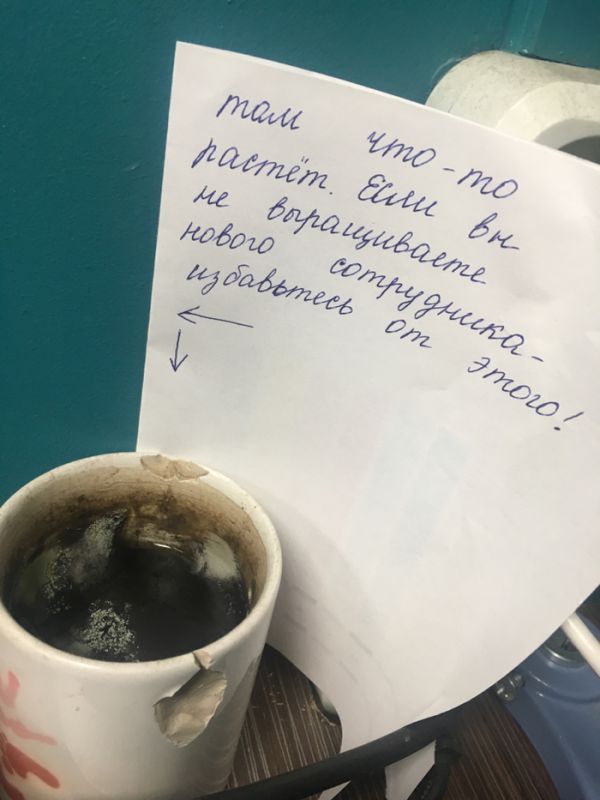 там что-то
растёт. Если вы
не выращиваете
нового сотрудника-
избавьтесь от этого!